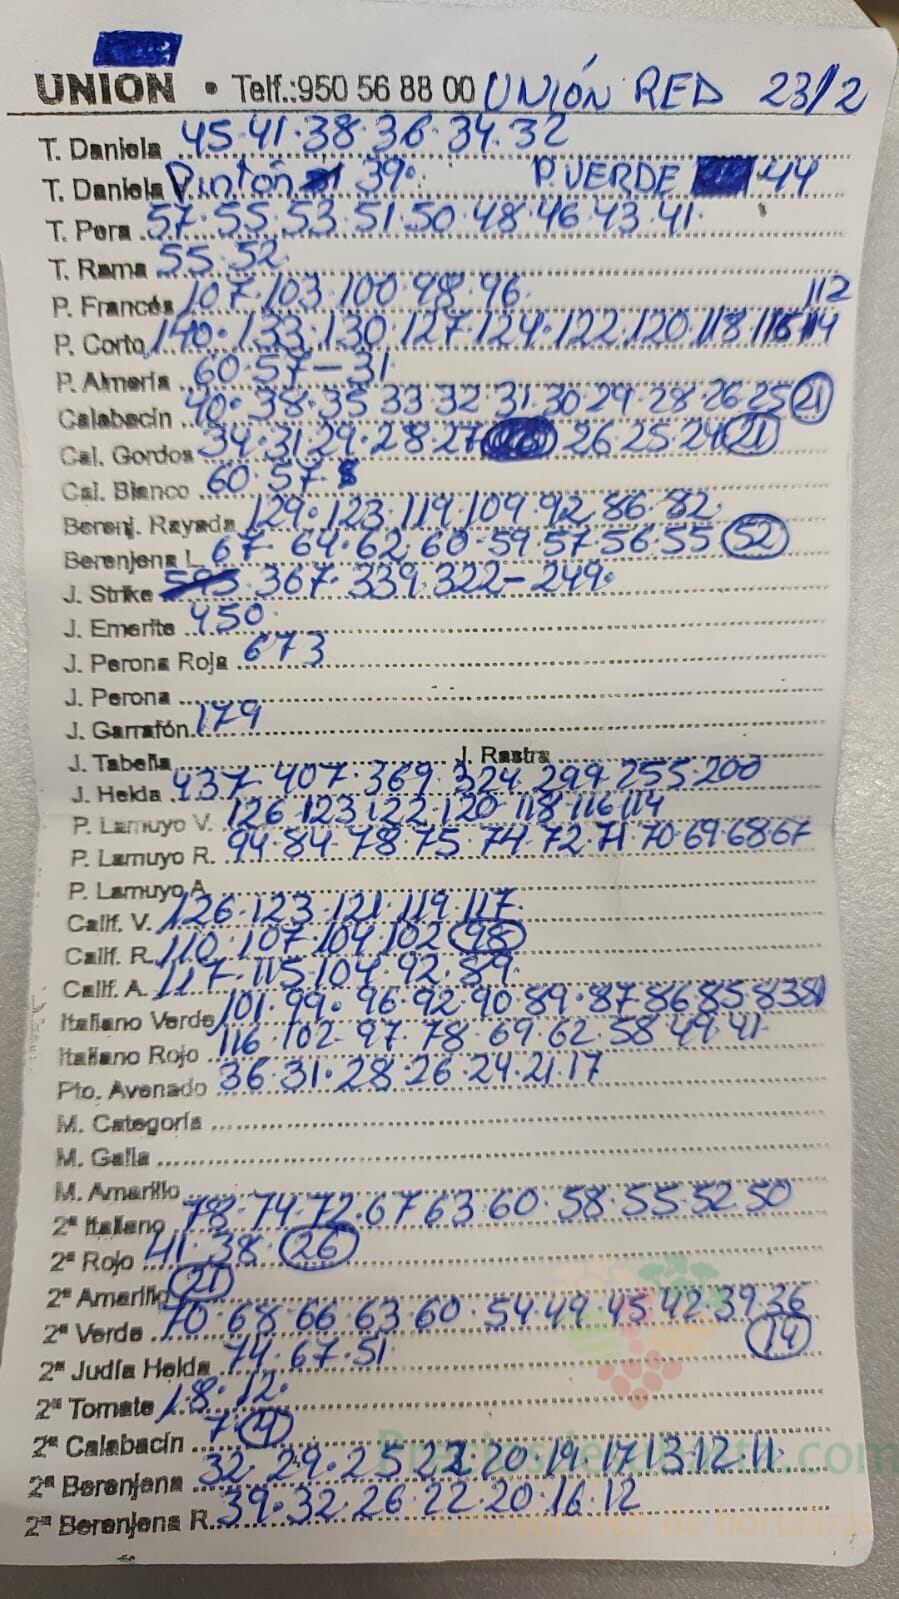 UNION • Telf.:950 56 88 00 UNIÓN RED 23/2
T. Daniela 45·41·38·36·34·32
T. Daniela Pintón 39· P.VERDE 44
T. Pera 57·55·53·51·50·48·46·43·41·
T. Rama 55·52·
P. Francés 107·103·100·98·96· 112
P. Corto 140·133·130·127·124·122·120·118·116 114
P. Almería 60·57-31·
Calabacín 40·38·35 33·32·31·30·29·28·26·25 21
Cal. Gordos 34·31·29·28·27 26·25·24 21
Cal. Blanco 60·57·
Berenj. Rayada 129·123·119·109·92·86·82·
Berenjena L. 67·64·62·60·59·57·56·55 52
J. Strike 367·339·322-249·
J. Emerite 450·
J. Perona Roja 673
J. Perona
J. Garrafón 179
J. Tabella J. Rastra
J. Helda 437·407·369·324·299·255·200
P. Lamuyo V. 126·123·122·120·118·116·114
P. Lamuyo R. 94·84·78·75·74·72·71·70·69·68·67
P. Lamuyo A.
Calif. V. 126·123·121·119·117·
Calif. R. 110·107·104·102 98
Calif. A. 117·115·104·92·89·
Italiano Verde 101·99·96·92·90·89·87·86·85·83 81
Italiano Rojo 116·102·97·78·69·62·58·49·41·
Pto. Avenado 36·31·28·26·24·21·17
M. Categoría
M. Galia
M. Amarillo
2ª Italiano 78·74·72·67·63·60·58·55·52·50
2ª Rojo 41·38· 26
2ª Amarillo 21
2ª Verde 70·68·66·63·60·54·49·45·42·39·36
14
2ª Judía Helda 74·67·51·
2ª Tomate 18·12·
2ª Calabacín 7·4
2ª Berenjena 32·29·25 20·19·17·13·12·11·
2ª Berenjena R. 39·32·26·22·20·16·12
Preciosdesubasta.com
La mayor web de hortalizas